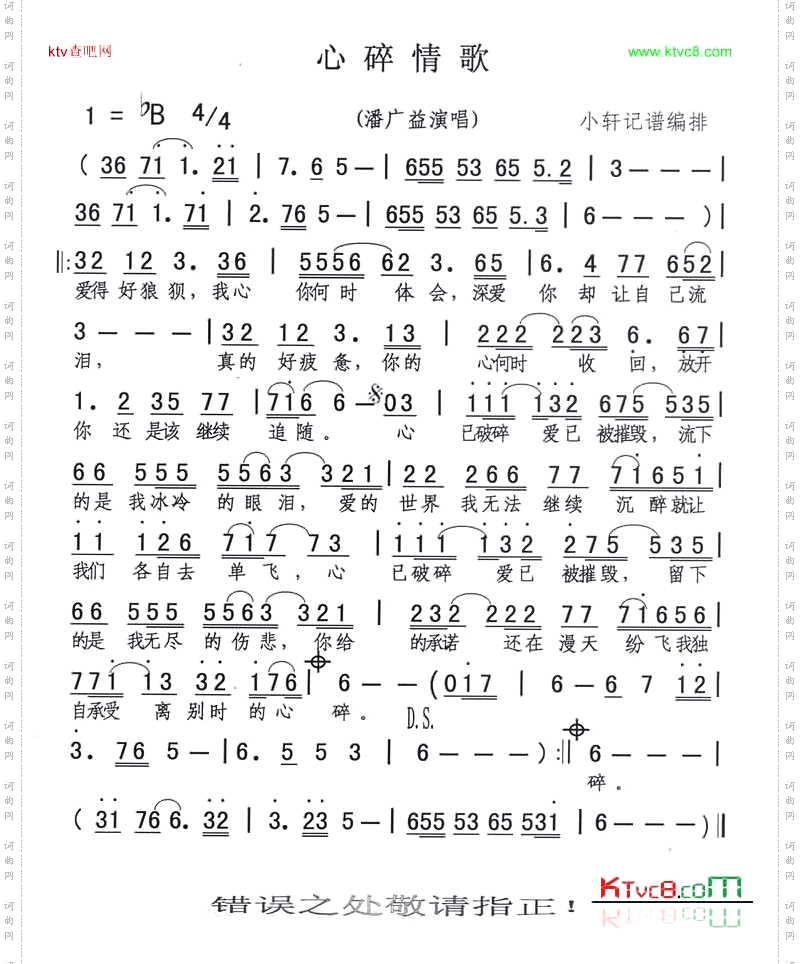 ktv查吧网
www.ktvc8.com
心碎情歌
1 = ♭B 4/4
(潘广益演唱)
小轩记谱编排
( 36 71 1. 21 | 7. 6 5 — | 655 53 65 5.2 | 3 — — — |
36 71 1. 71 | 2. 76 5 — | 655 53 65 5.3 | 6 — — — ) |
‖: 32 12 3. 36 | 5556 62 3. 65 | 6. 4 77 652 |
爱得 好狼狈, 我心 你何时 体 会, 深爱 你 却 让自 己流
3 — — — | 32 12 3. 13 | 222 223 6. 67 |
泪, 真的 好疲惫, 你的 心何时 收 回, 放开
1. 2 35 77 | 716 6 — 03 | 111 132 675 535 |
你 还 是该 继续 追随。 心 已破碎 爱已 被摧毁, 流下
66 555 5563 321 | 22 266 77 71651 |
的是 我冰冷 的眼泪, 爱的 世界 我无法 继续 沉 醉就让
11 126 717 73 | 111 132 275 535 |
我们 各自去 单飞, 心 已破碎 爱已 被摧毁, 留下
66 555 5563 321 | 232 222 77 71656 |
的是 我无尽 的伤悲, 你给 的承诺 还在 漫天 纷飞我独
771 13 32 176 | 6 — — (017 | 6 — 6 7 12 |
自承受 离别时 的心 碎。 D.S.
3. 76 5 — | 6. 5 5 3 | 6 — — — ) :‖ 6 — — — |
碎。
( 31 76 6. 32 | 3. 23 5 — | 655 53 65 531 | 6 — — — ) ‖
KTvc8.com
错误之处敬请指正!
词曲网
词曲网
词曲网
词曲网
词曲网
词曲网
词曲网
词曲网
词曲网
词曲网
词曲网
词曲网
词曲网
词曲网